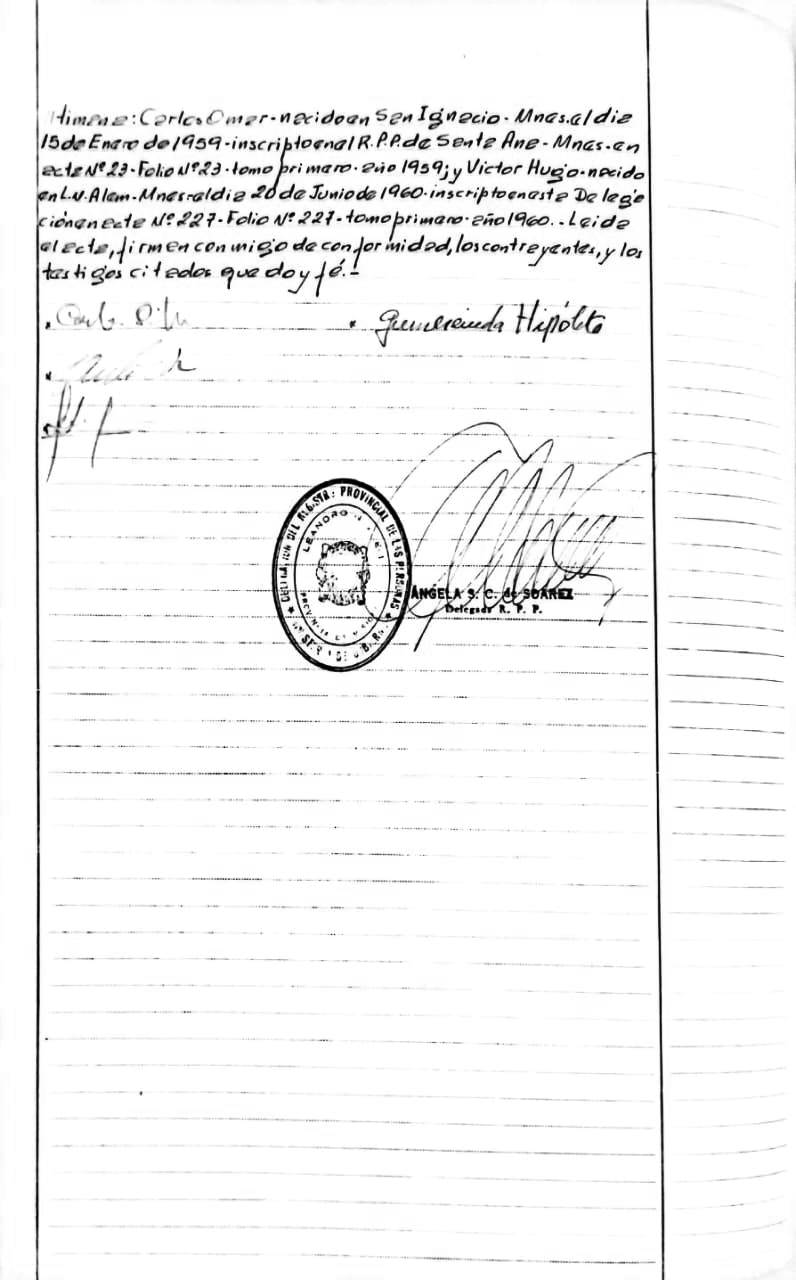 Himena: Carlos Omar-nacido en San Ignacio-Mnas. al dia
15 de Enero de 1959-inscripto en el R.P.P. de Santa Ana-Mnas.-en
acta Nº 23-Folio Nº 23-tomo primero-año 1959; y Victor Hugo-nacido
en L.N. Alem-Mnas-el dia 20 de Junio de 1960-inscripto en esta Delega
ción en acta Nº 227-Folio Nº 227-tomo primero-año 1960.-Leida
el acta, firman conmigo de conformidad, los contrayentes, y los
testigos citados que doy fé.-
Gumercinda Hipólito
DEL REGISTR: PROVINCIAL DE LAS PERSONAS
LEANDRO N.
ANGELA S. C. de SUAREZ
Delegada R. P. P.